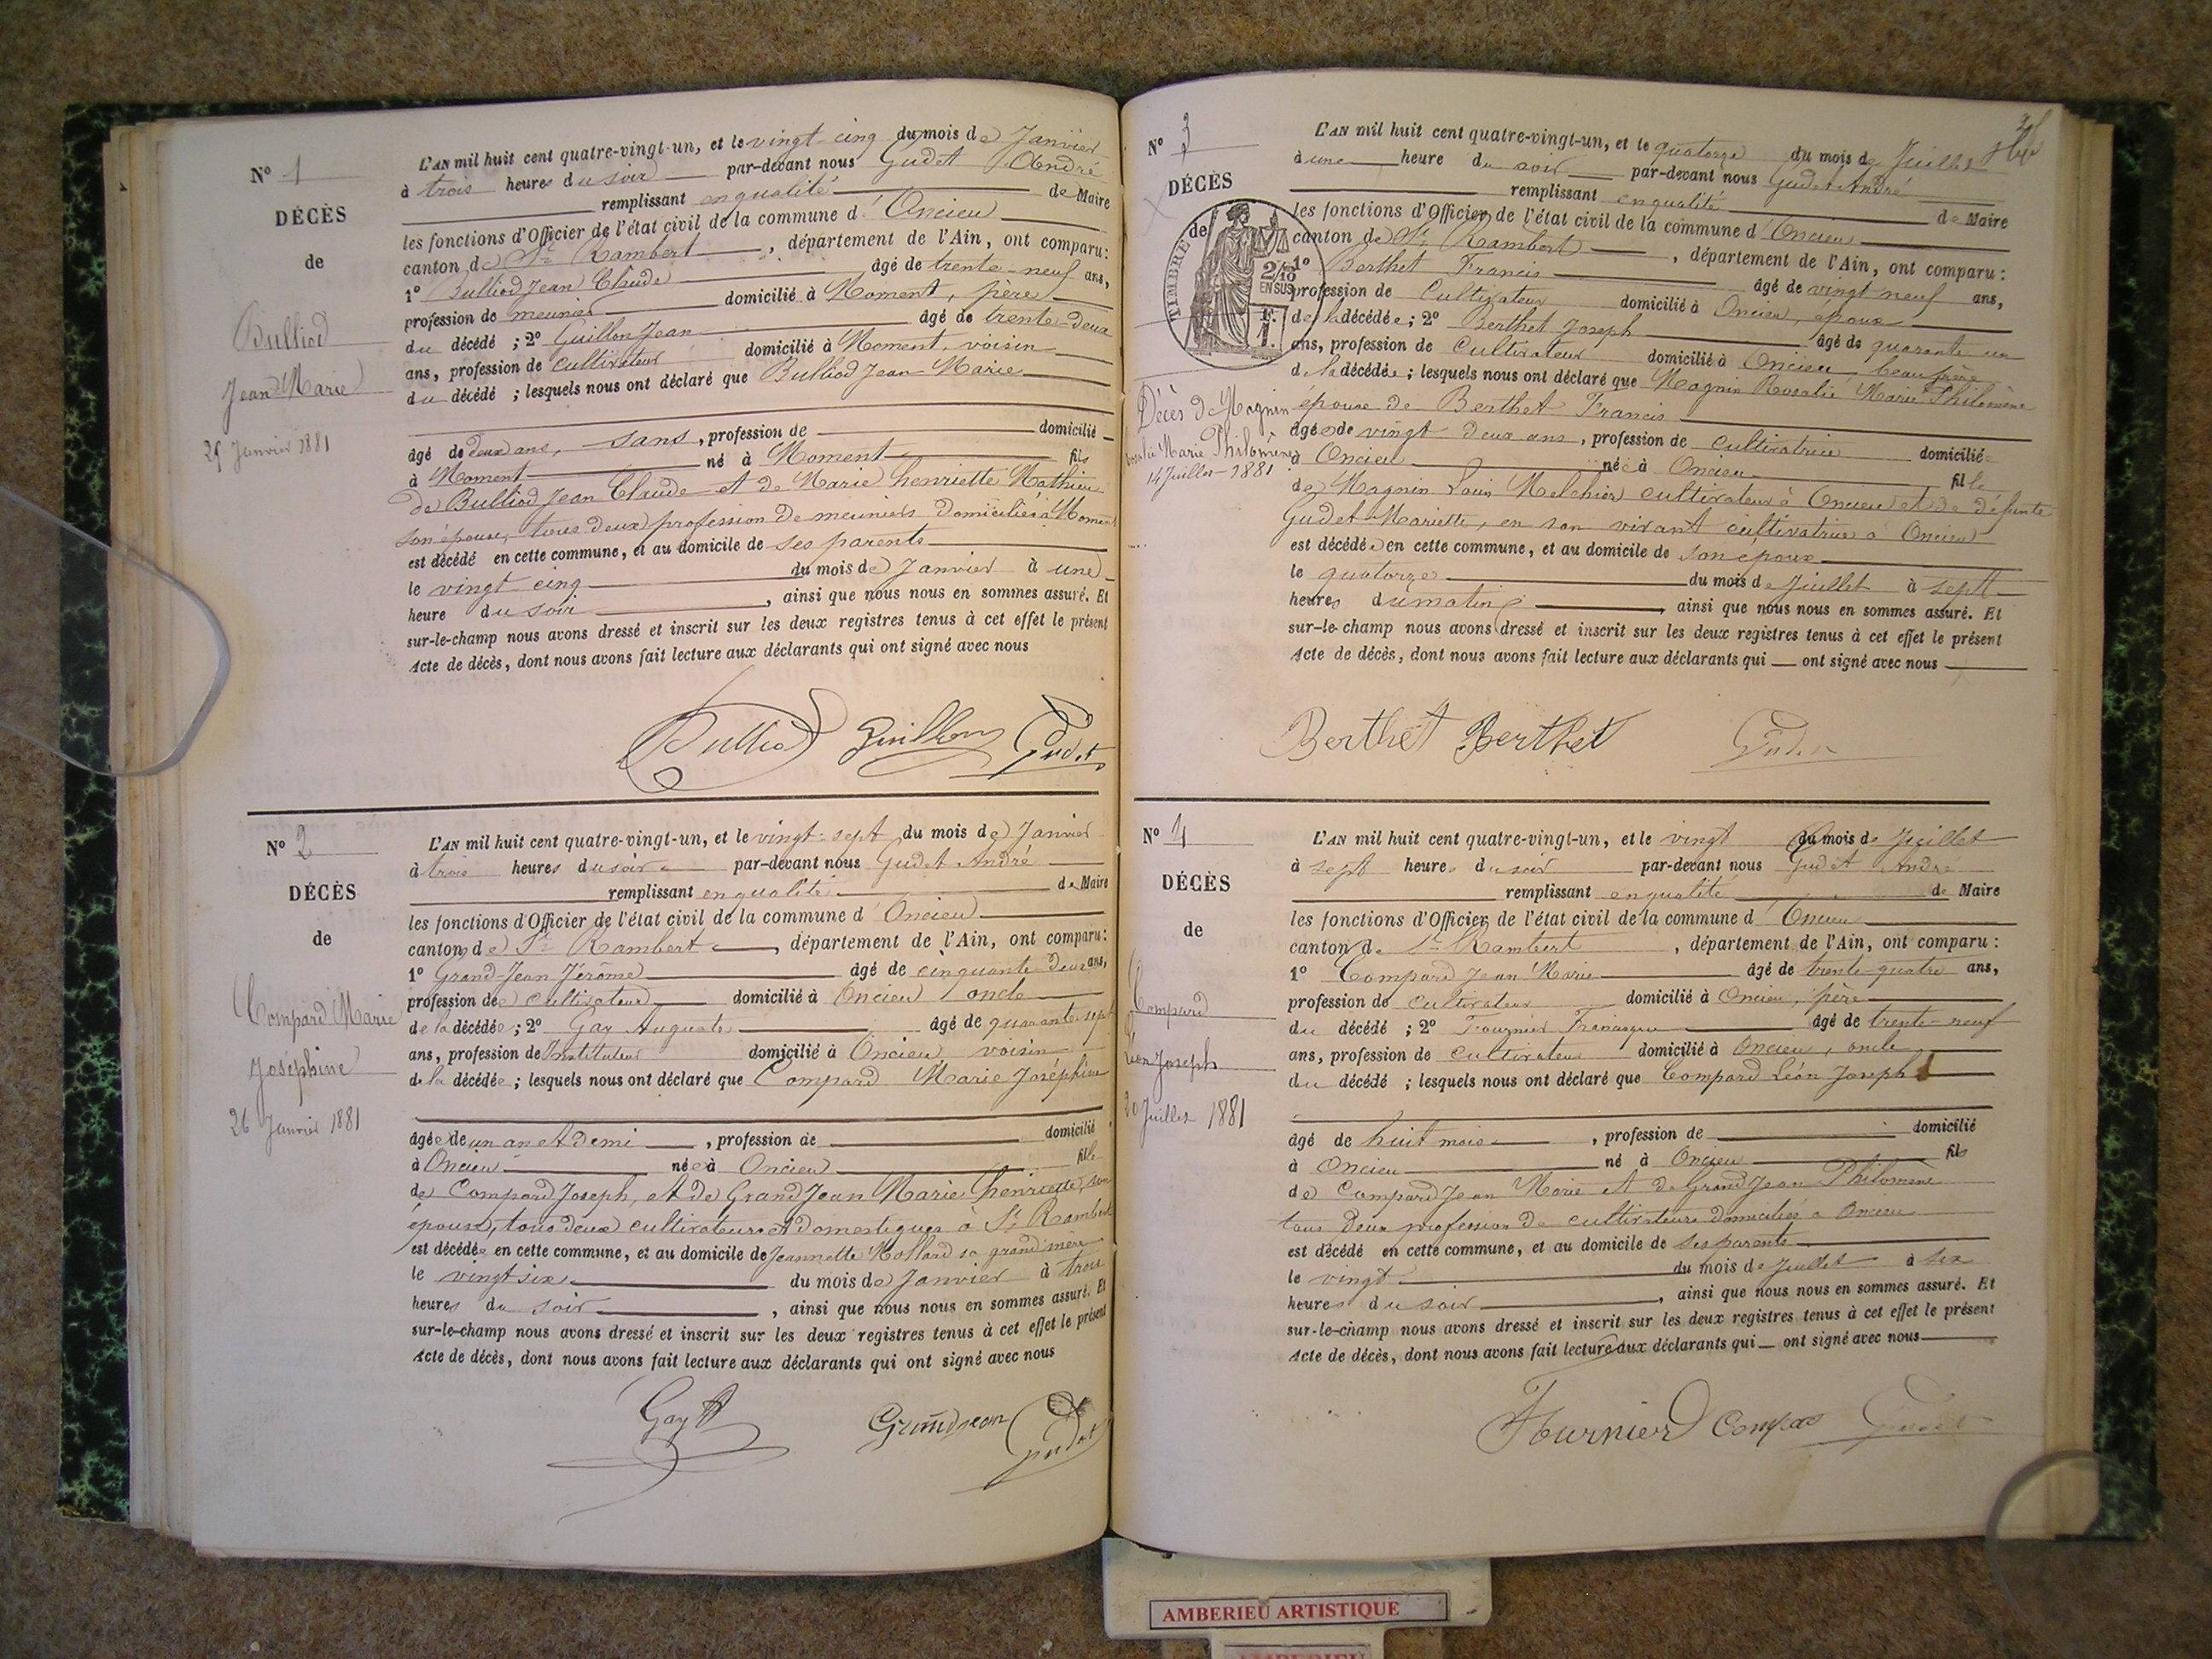 N° 1
DÉCÈS
de
Bulliod
Jean Marie
25 Janvier 1881
L'AN mil huit cent quatre-vingt-un, et le vingt-cinq du mois de Janvier
à trois heures du soir par-devant nous Gudet André
remplissant en qualité de Maire
les fonctions d'Officier de l'état civil de la commune d'Oncieu
canton de St Rambert, département de l'Ain, ont comparu:
1° Bulliod Jean Claude âgé de trente-neuf ans,
profession de meunier domicilié à Moment, père
du décédé ; 2° Guillon Jean âgé de trente-deux
ans, profession de cultivateur domicilié à Moment, voisin
du décédé ; lesquels nous ont déclaré que Bulliod Jean Marie
âgé de deux ans, sans, profession de domicilié
à Moment né à Moment fils
de Bulliod Jean Claude et de Marie henriette Mathieu
son épouse, tous deux profession de meuniers domiciliés à Moment
est décédé en cette commune, et au domicile de ses parents
le vingt cinq du mois de Janvier à une
heure du soir, ainsi que nous nous en sommes assuré. Et
sur-le-champ nous avons dressé et inscrit sur les deux registres tenus à cet effet le présent
Acte de décès, dont nous avons fait lecture aux déclarants qui ont signé avec nous
Bulliod Guillon Gudet
N° 2
DÉCÈS
de
Compard Marie
Joséphine
26 Janvier 1881
L'AN mil huit cent quatre-vingt-un, et le vingt-sept du mois de Janvier
à trois heures du soir par-devant nous Gudet André
remplissant en qualité de Maire
les fonctions d'Officier de l'état civil de la commune d'Oncieu
canton de St Rambert, département de l'Ain, ont comparu:
1° Grand-Jean Jérôme âgé de cinquante-deux ans,
profession de cultivateur domicilié à Oncieu oncle
de la décédée ; 2° Gay Auguste âgé de quarante-sept
ans, profession de Instituteur domicilié à Oncieu voisin
de la décédée ; lesquels nous ont déclaré que Compard Marie Joséphine
âgée de un an et demi, profession de domicilié
à Oncieu née à Oncieu fille
de Compard Joseph, et de Grand Jean Marie henriette, son
épouse, tous deux cultivateurs et domestiques à St Rambert
est décédée en cette commune, et au domicile de Jeannette Mollard sa grand'mère
le vingt six du mois de Janvier à trois
heures du soir, ainsi que nous nous en sommes assuré. Et
sur-le-champ nous avons dressé et inscrit sur les deux registres tenus à cet effet le présent
Acte de décès, dont nous avons fait lecture aux déclarants qui ont signé avec nous
Gay A Grandjean Gudet
N° 3
DÉCÈS
de
TIMBRE
2/10
EN SUS
F.
1.
Décès de Magnin
Rosalie Marie Philomène
14 Juillet 1881
L'AN mil huit cent quatre-vingt-un, et le quatorze du mois de Juillet
à une heure du soir par-devant nous Gudet André
remplissant en qualité de Maire
les fonctions d'Officier de l'état civil de la commune d'Oncieu
canton de St Rambert, département de l'Ain, ont comparu:
1° Berthet Francis âgé de vingt neuf ans,
profession de Cultivateur domicilié à Oncieu, époux
de la décédée ; 2° Berthet Joseph âgé de quarante un
ans, profession de Cultivateur domicilié à Oncieu beau frère
de la décédée ; lesquels nous ont déclaré que Magnin Rosalie Marie Philomène
épouse de Berthet Francis
âgée de vingt deux ans, profession de cultivatrice domicilié
à Oncieu née à Oncieu fille
de Magnin Louis Melchior cultivateur à Oncieu et de défunte
Gudet Mariette, en son vivant cultivatrice à Oncieu
est décédée en cette commune, et au domicile de son époux
le quatorze du mois de Juillet à sept
heures du matin, ainsi que nous nous en sommes assuré. Et
sur-le-champ nous avons dressé et inscrit sur les deux registres tenus à cet effet le présent
Acte de décès, dont nous avons fait lecture aux déclarants qui ont signé avec nous
Berthet Berthet Gudet
N° 4
DÉCÈS
de
Compard
Léon Joseph
20 Juillet 1881
L'AN mil huit cent quatre-vingt-un, et le vingt du mois de Juillet
à sept heures du soir par-devant nous Gudet André
remplissant en qualité de Maire
les fonctions d'Officier de l'état civil de la commune d'Oncieu
canton de St Rambert, département de l'Ain, ont comparu:
1° Compard Jean Marie âgé de trente-quatre ans,
profession de cultivateur domicilié à Oncieu, père
du décédé ; 2° Fournier âgé de trente-neuf
ans, profession de cultivateur domicilié à Oncieu, oncle
du décédé ; lesquels nous ont déclaré que Compard Léon Joseph
âgé de huit mois, profession de domicilié
à Oncieu né à Oncieu fils
de Compard Jean Marie et de Grand Jean Philomène
tous deux profession de cultivateurs domiciliés à Oncieu
est décédé en cette commune, et au domicile de ses parents
le vingt du mois de Juillet à six
heures du soir, ainsi que nous nous en sommes assuré. Et
sur-le-champ nous avons dressé et inscrit sur les deux registres tenus à cet effet le présent
Acte de décès, dont nous avons fait lecture aux déclarants qui ont signé avec nous
Fournier Gudet
AMBERIEU ARTISTIQUE
AMBERIEU